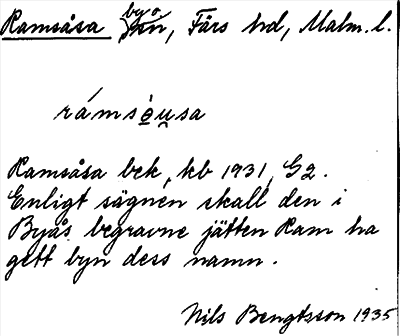 Ramsåsa by o sn, Färs hd, Malm. l.
rámsòu̯sa
Ramsåsa bek, kb 1931, G2.
Enligt sägnen skall den i
Byås begravne jätten Ram ha
gett byn dess namn.
Nils Bengtsson 1935